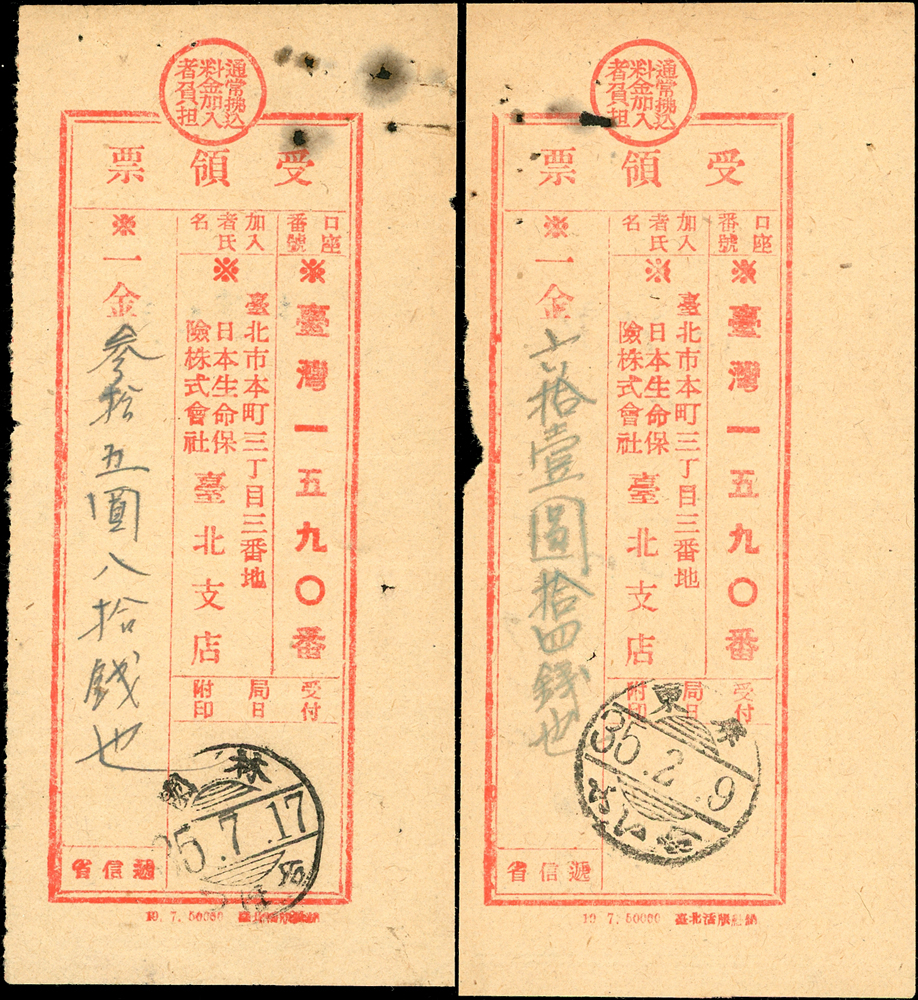 通常拂込
料金加入
者負担
受領票
口座番號
※臺灣一五九〇番
加入者氏名
※
臺北市本町三丁目三番地
日本生命保
險株式會社
臺北支店
※一金参拾五圓八拾錢也
受付局日附印
林
35.7.17
遞信省
19. 7. 50000 臺北活版社納
通常拂込
料金加入
者負担
受領票
口座番號
※臺灣一五九〇番
加入者氏名
※
臺北市本町三丁目三番地
日本生命保
險株式會社
臺北支店
※一金六拾壹圓拾四錢也
受付局日附印
屏東
35.2.9
遞信省
19 7. 50000 臺北活版社納